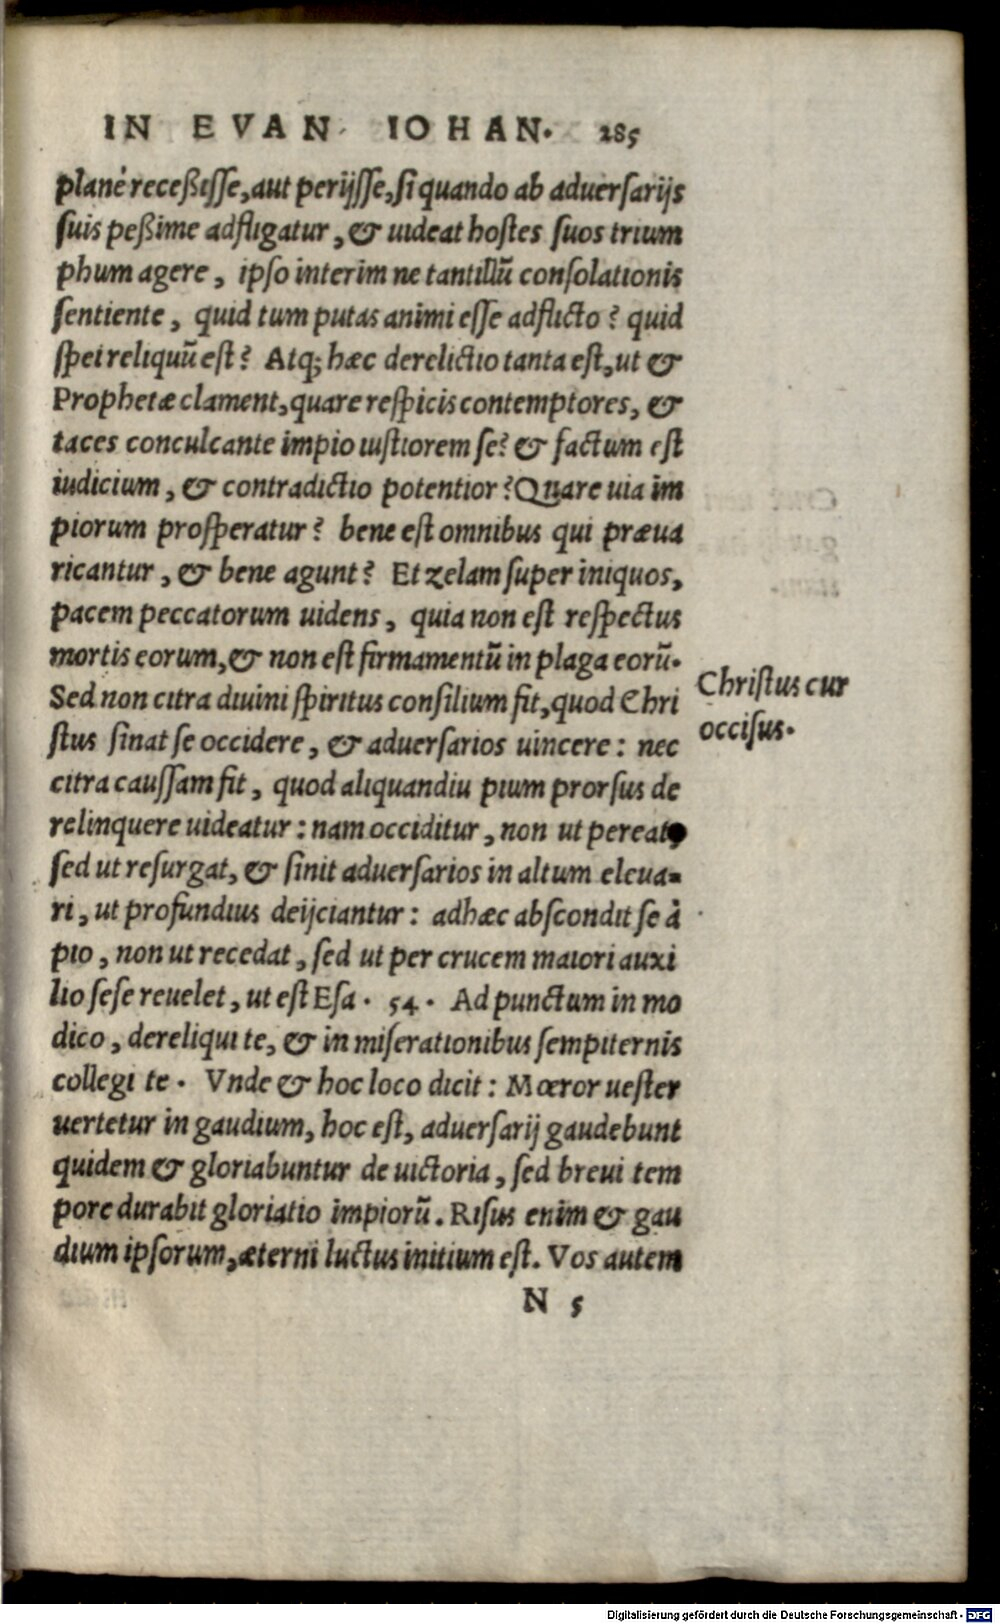 IN EVAN. IOHAN. 285
planè receßisse, aut perijsse, si quando ab aduersarijs
suis peßime adfligatur, & uideat hostes suos trium
phum agere, ipso interim ne tantillũ consolationis
sentiente, quid tum putas animi esse adflicto? quid
spei reliquũ est? Atq; hæc derelictio tanta est, ut &
Prophetæ clament, quare respicis contemptores, &
taces conculcante impio iustiorem se? & factum est
iudicium, & contradictio potentior? Quare uia im
piorum prosperatur? bene est omnibus qui præua
ricantur, & bene agunt? Et zelam super iniquos,
pacem peccatorum uidens, quia non est respectus
mortis eorum, & non est firmamentũ in plaga eorũ.
Sed non citra diuini spiritus consilium fit, quod Chri
stus sinat se occidere, & aduersarios uincere: nec
citra caussam fit, quod aliquandiu pium prorsus de
relinquere uideatur: nam occiditur, non ut pereat,
sed ut resurgat, & sinit aduersarios in altum eleua-
ri, ut profundius deijciantur: adhæc abscondit se à
pio, non ut recedat, sed ut per crucem maiori auxi
lio sese reuelet, ut est Esa. 54. Ad punctum in mo
dico, dereliqui te, & in miserationibus sempiternis
collegi te. Vnde & hoc loco dicit: Mœror uester
uertetur in gaudium, hoc est, aduersarij gaudebunt
quidem & gloriabuntur de uictoria, sed breui tem
pore durabit gloriatio impiorũ. Risus enim & gau
dium ipsorum, æterni luctus initium est. Vos autem
N 5
Christus cur
occisus.
Digitalisierung gefördert durch die Deutsche Forschungsgemeinschaft - DFG